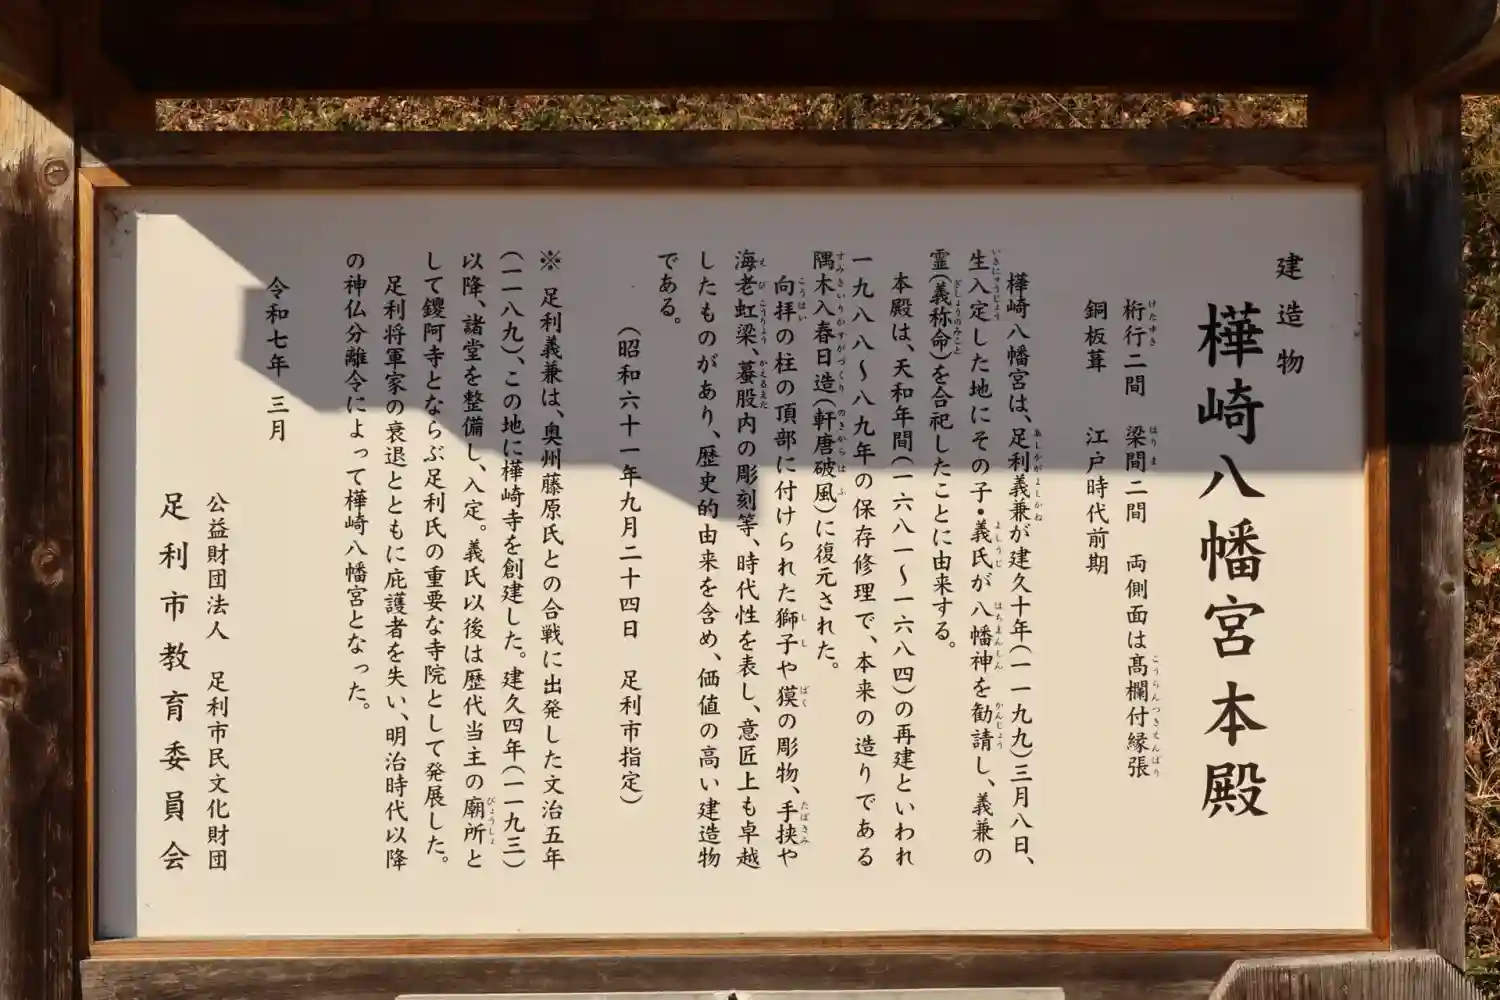 建造物
樺崎八幡宮本殿
桁行二間 梁間二間 両側面は高欄付縁張
銅板葺 江戸時代前期
樺崎八幡宮は、足利義兼が建久十年(一一九九)三月八日、
生入定した地にその子・義氏が八幡神を勧請し、義兼の
霊(義称命)を合祀したことに由来する。
本殿は、天和年間(一六八一〜一六八四)の再建といわれ
一九八八〜八九年の保存修理で、本来の造りである
隅木入春日造(軒唐破風)に復元された。
向拝の柱の頂部に付けられた獅子や獏の彫物、手挟や
海老虹梁、蟇股内の彫刻等、時代性を表し、意匠上も卓越
したものがあり、歴史的由来を含め、価値の高い建造物
である。
(昭和六十一年九月二十四日 足利市指定)
※ 足利義兼は、奥州藤原氏との合戦に出発した文治五年
(一一八九)、この地に樺崎寺を創建した。建久四年(一一九三)
以降、諸堂を整備し、入定。義氏以後は歴代当主の廟所と
して鑁阿寺とならぶ足利氏の重要な寺院として発展した。
足利将軍家の衰退とともに庇護者を失い、明治時代以降
の神仏分離令によって樺崎八幡宮となった。
令和七年 三月
公益財団法人 足利市民文化財団
足利市教育委員会